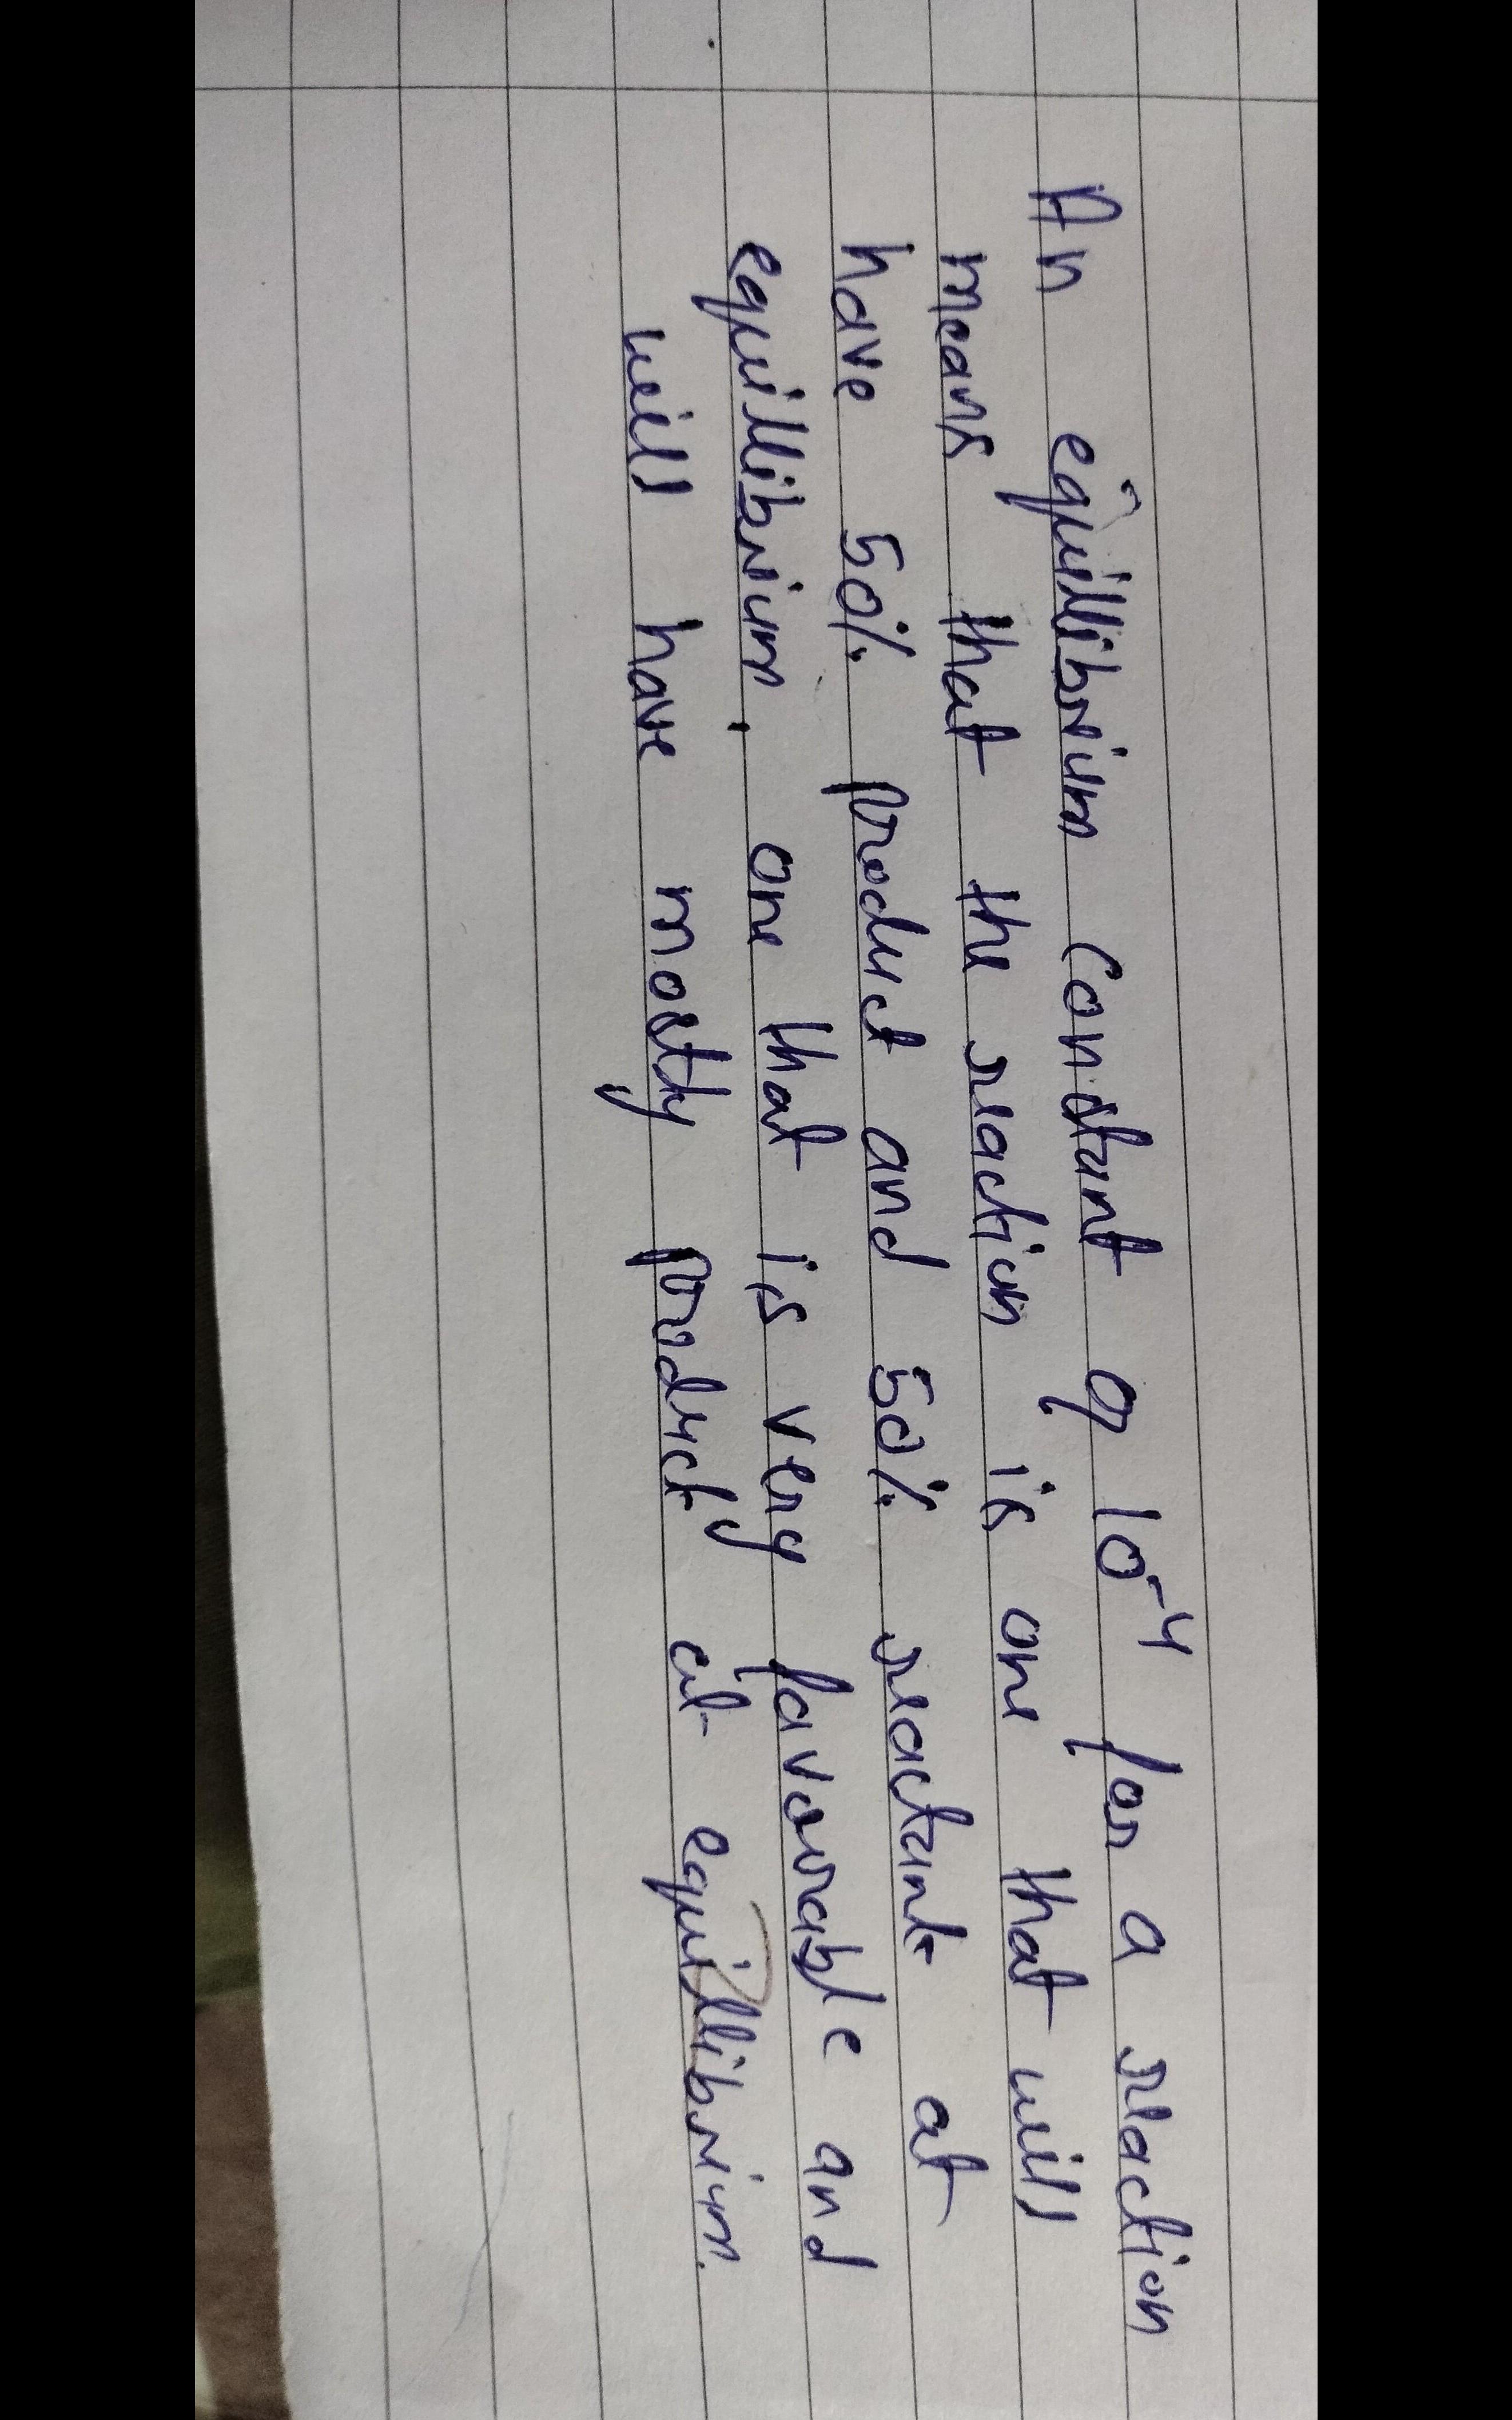 An equillibrium constant of 10-4 for a reaction
means that the reaction is one that will
have 50% product and 50% reactant at
equillibrium, one that is very favorable and
will have mostly product at equillibrium.